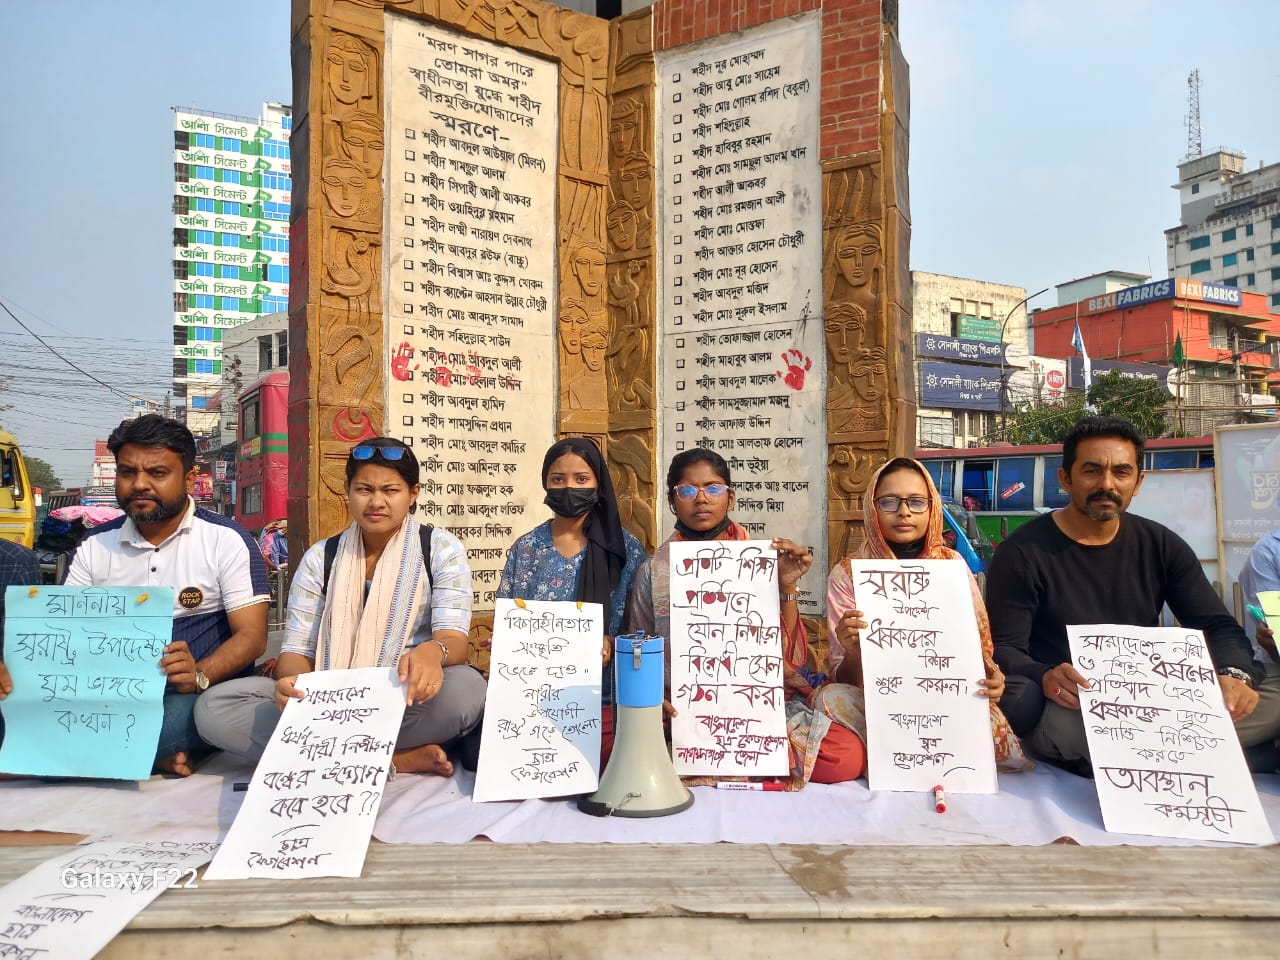 "মরণ সাগর পারে
তোমরা অমর"
স্বাধীনতা যুদ্ধে শহীদ
বীরমুক্তিযোদ্ধাদের
স্মরণে-
শহীদ আবদুল আউয়াল (মিলন)
শহীদ শামছুল আলম
শহীদ সিপাহী আলী আকবর
শহীদ ওয়াহিদুর রহমান
শহীদ লক্ষী নারায়ন দেবনাথ
শহীদ আবদুর রউফ (বাচ্চু)
শহীদ বিশ্বাস আঃ কুদ্দুস খোকন
শহীদ ক্যাপ্টেন আহসান উল্লাহ চৌধুরী
শহীদ মোঃ আবদুস সামাদ
শহীদ সহিদুল্লাহ সাউদ
শহীদ মোঃ আবদুল আলী
শহীদ মোঃ হেলাল উদ্দিন
শহীদ আবদুল হামিদ
শহীদ শামসুদ্দিন প্রধান
শহীদ মোঃ আবদুল কাদির
শহীদ মোঃ আমিনুল হক
শহীদ মোঃ ফজলুল হক
শহীদ মোঃ আবদুল লতিফ
আবুবকর সিদ্দিক
মোশারফ
আবদুল
শহীদ নূর মোহাম্মদ
শহীদ আবু মোঃ সায়েম
শহীদ মোঃ গোলাম রশিদ (বকুল)
শহীদ শহিদুল্লাহ
শহীদ হাবিবুর রহমান
শহীদ মোঃ সামছুল আলম খান
শহীদ আলী আকবর
শহীদ মোঃ রমজান আলী
শহীদ মোঃ মোস্তফা
শহীদ আক্তার হোসেন চৌধুরী
শহীদ মোঃ নূর হোসেন
শহীদ আবদুল মজিদ
শহীদ মোঃ নূরুল ইসলাম
শহীদ তোফাজ্জল হোসেন
শহীদ মাহাবুব আলম
শহীদ আবদুল মালেক
শহীদ সামসুজ্জামান মজনু
শহীদ আফাজ উদ্দিন
শহীদ মোঃ আলতাফ হোসেন
মীন ভূইয়া
লনায়েক আঃ বাতেন
সিদ্দিক মিয়া
জামান
আশা সিমেন্ট
আশা সিমেন্ট
আশা সিমেন্ট
আশা সিমেন্ট
আশা সিমেন্ট
আশা সিমেন্ট
আশা সিমেন্ট
আশা সিমেন্ট
BEXI FABRICS
BEXI FABRICS
সোনালী ব্যাংক পিএলসি
সোনালী ব্যাংক পিএলসি
ROCK
STAR
মাননীয়
স্বরাষ্ট্র উপদেষ্টা
ঘুম ভাঙ্গবে
কখন?
সারাদেশে
অব্যাহত
ধর্ষণ-
নারী নিপীড়ন
বন্ধের উদ্যোগ
কবে হবে??
ছাত্র
ফেডারেশন
"বিচারহীনতার
সংস্কৃতি
ভেঙে দাও"
নারীর
উপযোগী
রাষ্ট্র গড়ে তোলো
ছাত্র
ফেডারেশন
প্রতিটি শিক্ষা
প্রতিষ্ঠানে
যৌন নিপীড়ন
বিরোধী সেল
গঠন কর।
বাংলাদেশ
ছাত্র ফেডারেশন
নারায়ণগঞ্জ জেলা
স্বরাষ্ট্র
উপদেষ্টা
ধর্ষকদের
বিচার
শুরু করুন।
বাংলাদেশ
ছাত্র
ফেডারেশন
সারাদেশে নারী
ও শিশু ধর্ষণের
প্রতিবাদ এবং
ধর্ষকদের দ্রুত
শাস্তি নিশ্চিত
করতে
অবস্থান
কর্মসূচী
বাংলাদেশ
ছাত্র
Galaxy F22